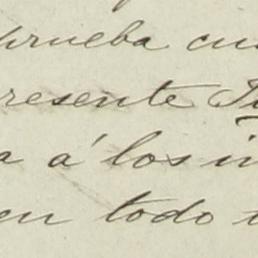 prueba
resente
a á los
en todo